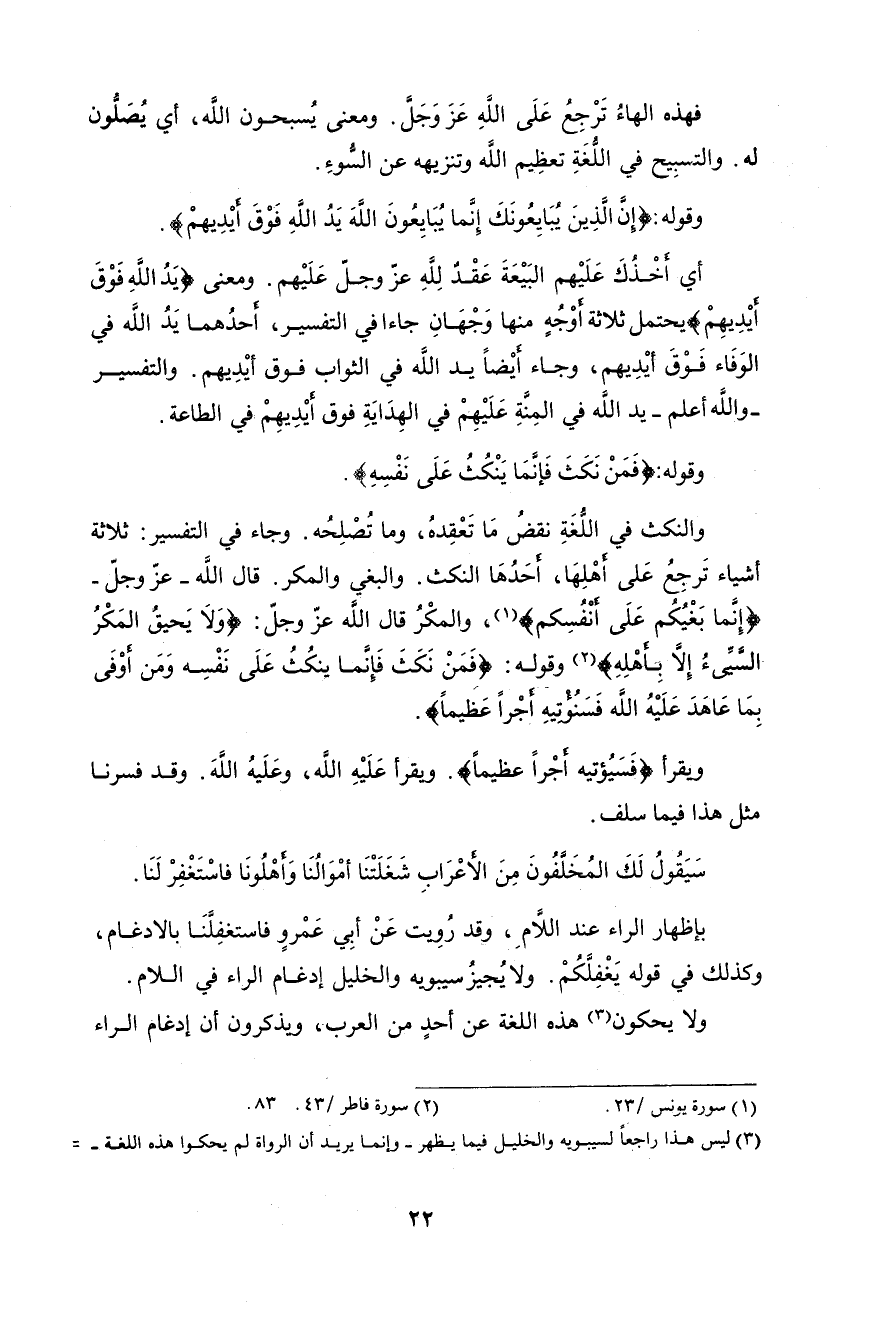 فهذه الهاءُ تَرْجِعُ عَلَى اللَّهِ عَزَ وَجَلَّ. ومعنى يُسبحون اللَّه، أي يُصَلُّون
له. والتسبِيح في اللُّغَةِ تعظِيم اللَّه وتنزيهه عن السُّوءِ.
وقوله: ﴿إِنَّ الَّذِينَ يُبَايِعُونَكَ إِنَّما يُبَايِعُونَ اللَّهَ يَدُ اللَّهِ فَوْقَ أَيْدِيهمْ﴾.
أي أَخْذُكَ عَلَيْهم البَيْعَةَ عَقْدٌ لِلَّهِ عزّ وجلّ عَلَيْهم. ومعنى ﴿يَدُ اللَّهِ فَوْقَ
أَيْدِيهِمْ﴾ يحتمل ثلاثة أَوْجُهٍ منها وَجْهَانِ جاءا في التفسير، أَحدُهما يَدُ اللَّه في
الوَفَاء فَوْقَ أيْدِيهم، وجاء أَيْضاً يد اللَّه في الثواب فوق أيْدِيهم. والتفسير
-واللَّه أعلم - يد اللَّه في المِنَّةِ عَلَيْهِمْ في الهِدَايَةِ فوق أَيْدِيهِمْ في الطاعة.
وقوله: ﴿فَمَنْ نَكَثَ فَإِنَّمَا يَنْكُثُ عَلَى نَفْسِهِ﴾.
والنكث في اللُّغَةِ نقضُ مَا تَعْقِدهُ، وما تُصْلِحُه. وجاء في التفسير: ثلاثة
أشياء تَرجِعُ عَلى أَهْلِهَا، أَحَدُهَا النكث. والبغي والمكر. قال اللَّه - عزّ وجلّ -
﴿إِنَّما بَغْيُكُم عَلَى أَنْفُسِكم﴾(١)، والمكْرُ قال اللَّه عزّ وجلّ: ﴿وَلَا يَحيقُ المَكْرُ
السَّيِّىءُ إِلَّا بِأَهْلِهِ﴾(٢) وقوله: ﴿فَمَنْ نَكَثَ فَإِنَّما ينكُثُ عَلَى نَفْسِه وَمَن أَوْفَى
بِمَا عَاهَدَ عَلَيْهُ اللَّه فَسَنُؤْتِيهِ أَجْراً عَظِيماً﴾.
ويقرأ ﴿فَسَيُؤتيه أَجْراً عظيماً﴾. ويقرأ عَلَيْهِ اللَّه، وعَلَيهُ اللَّهَ. وقد فسرنا
مثل هذا فيما سلف.
سَيَقُولُ لَكَ المُخَلَّفُونَ مِنَ الأَعْرَابِ شَغَلَتْنَا أمْوَالُنَا وَأَهْلُونَا فاسْتَغْفِرْ لَنَا.
بإظهار الراء عند اللَّامِ، وقد رُويت عَنْ أبِي عَمْرٍو فاستغفِلَّنَا بالادغام،
وكذلك في قوله يَغْفِلَّكُمْ. ولا يُجيزُ سيبويه والخليل إدغام الراء في اللام.
ولا يحكون(٣) هذه اللغة عن أحدٍ من العرب، ويذكرون أن إدغام الراء
(١) سورة يونس /٢٣. (٢) سورة فاطر /٤٣. ٨٣.
(٣) ليس هذا راجعاً لسيبويه والخليل فيما يظهر - وإنما يريد أن الرواة لم يحكوا هذه اللغة - =
٢٢